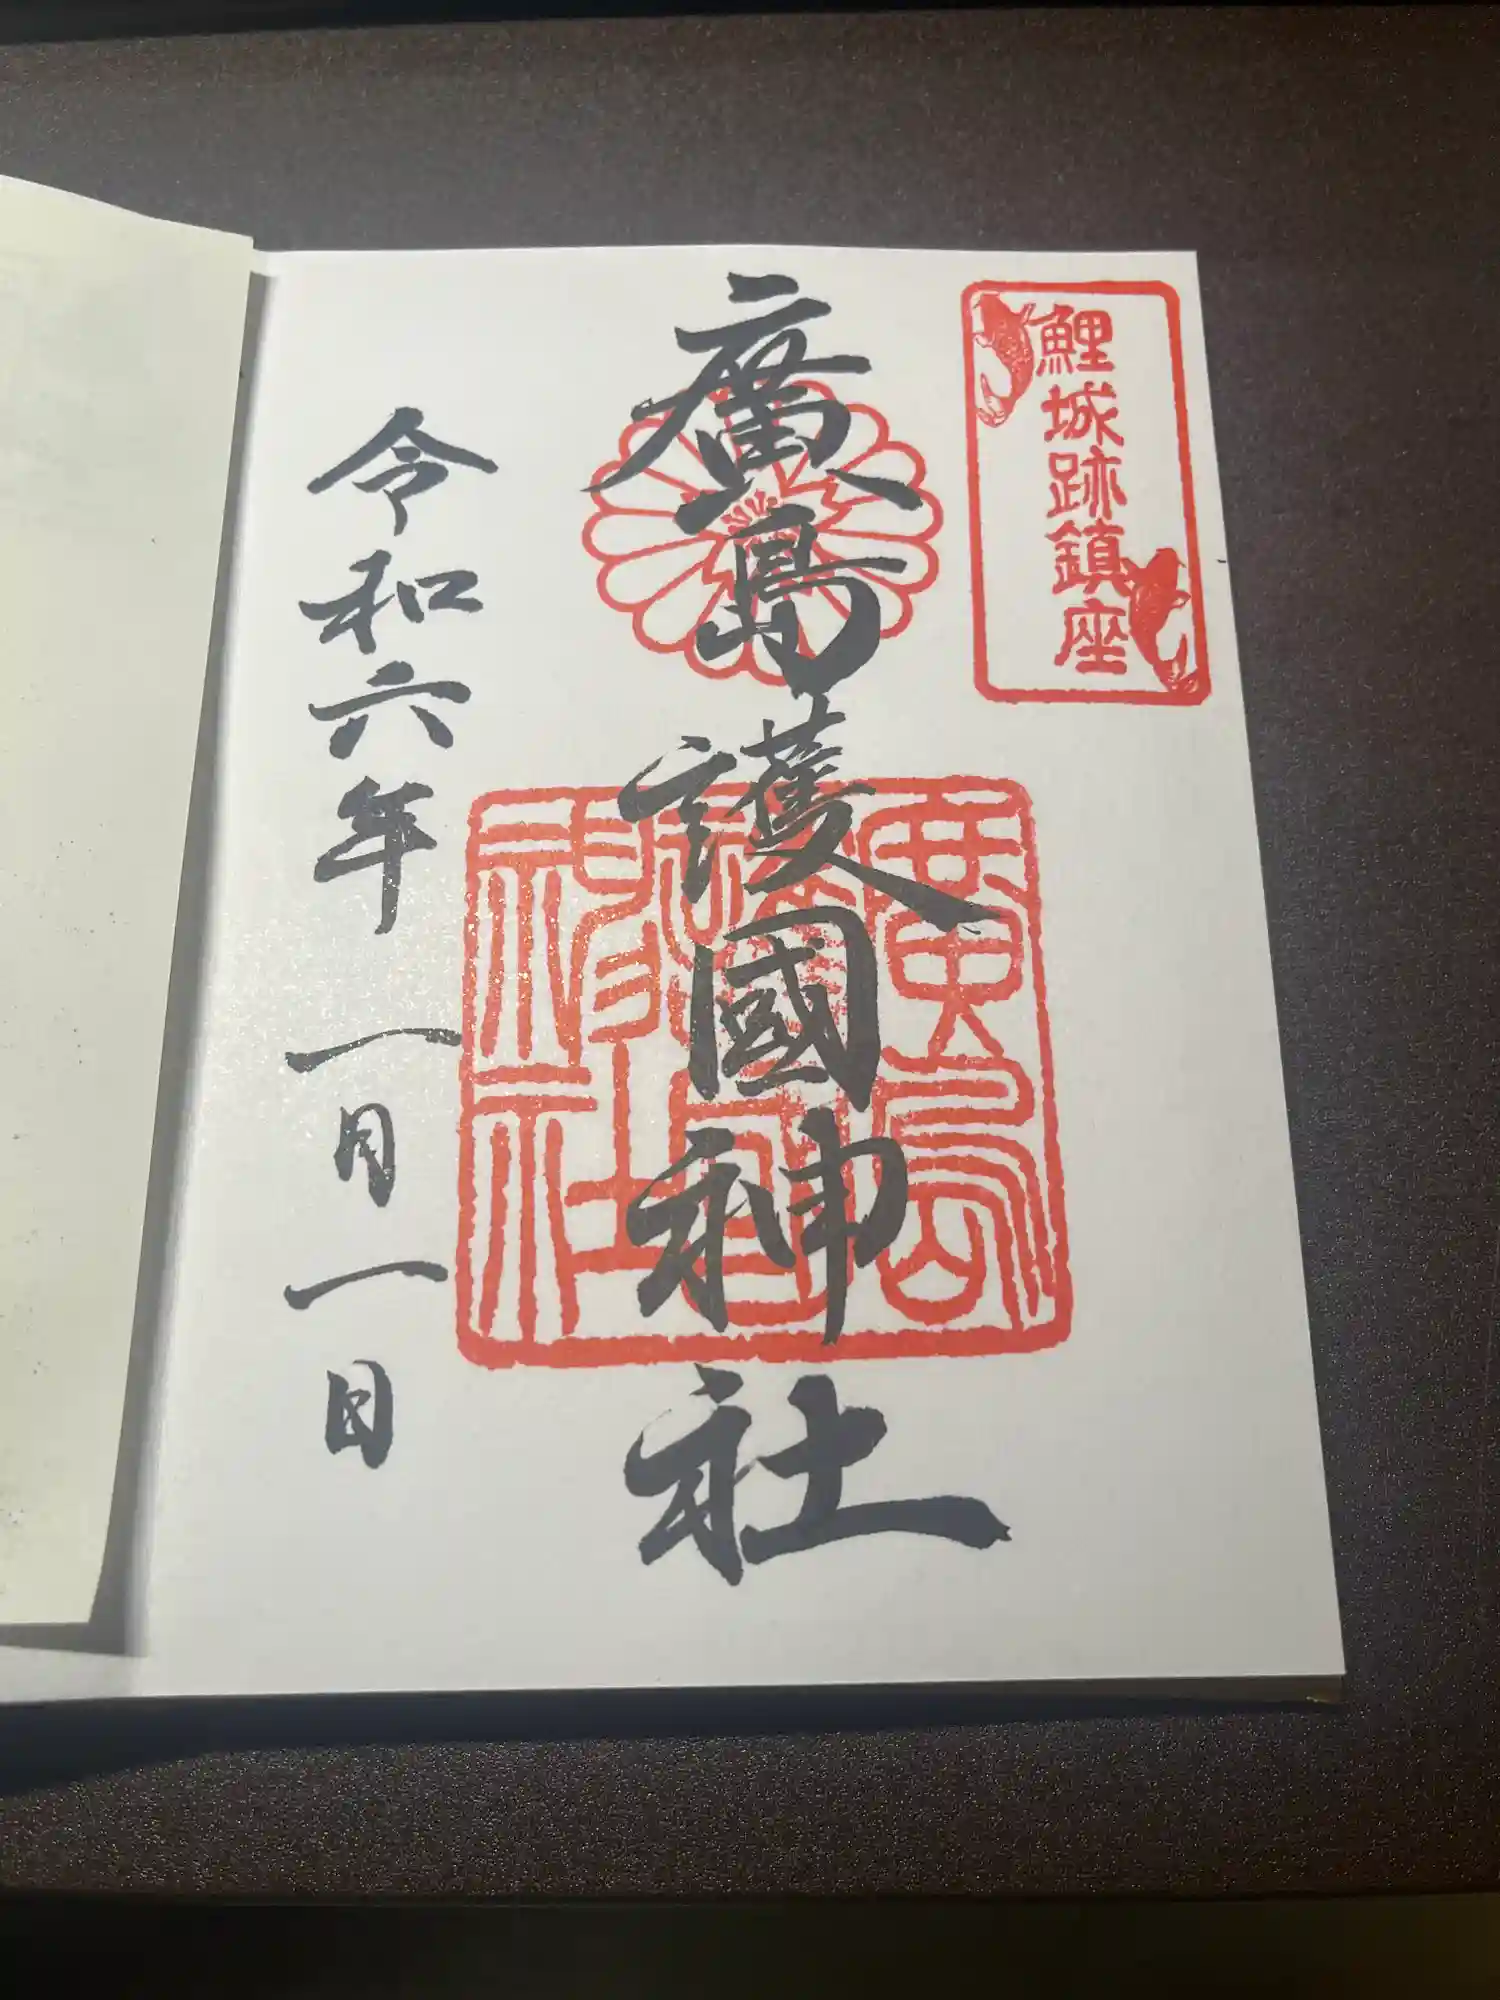 鯉城跡鎮座
廣島護國神社
廣島護國神社
令和六年一月一日